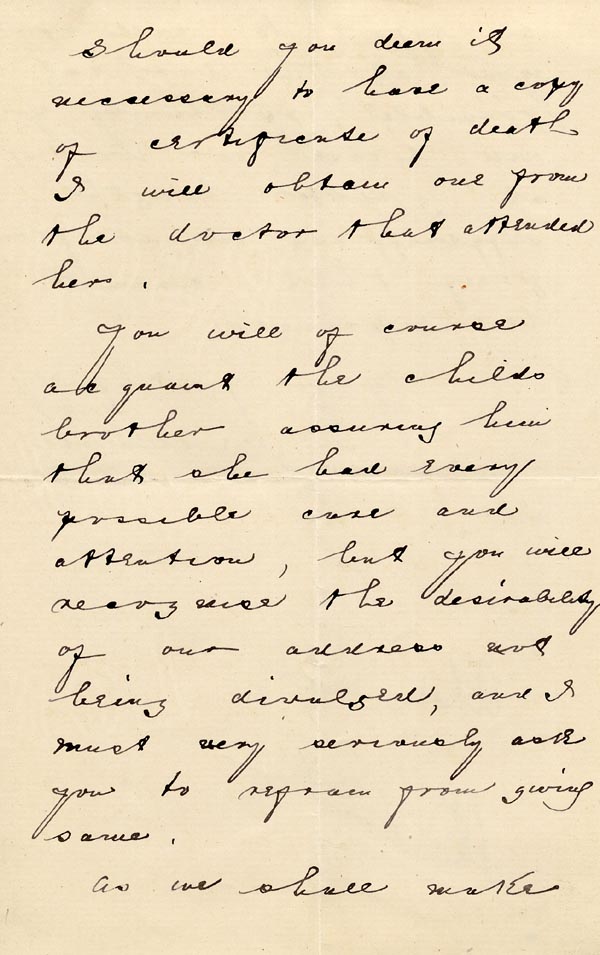 Should you deem it
necessary to have a copy
of certificate of death
I will obtain one from
the doctor that attended
her.
You will of course
acquaint the childs
brother assuring him
that she had every
possible care and
attention, but you will
recognise the desirability
of our address not
being divulged, and I
must very seriously ask
you to refrain from giving
same.
As we shall make